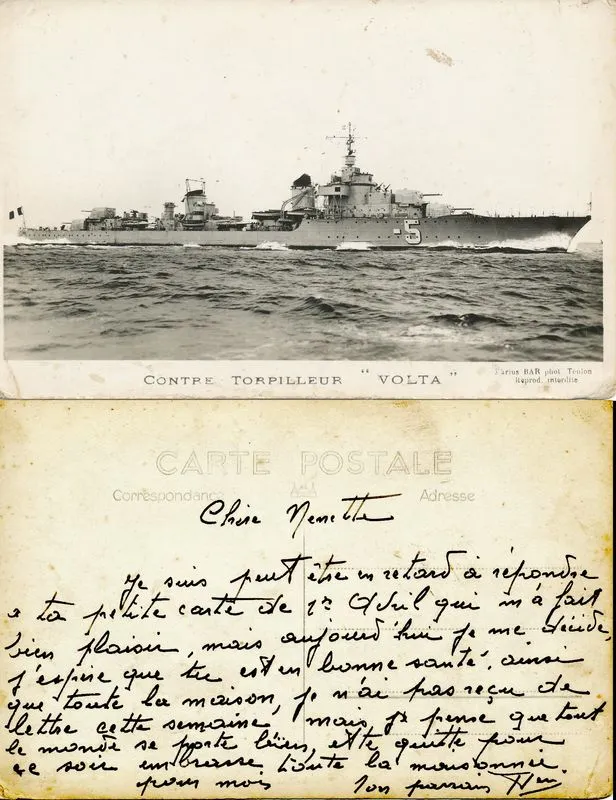 -5
CONTRE TORPILLEUR "VOLTA"
Marius BAR phot Toulon
Reprod. interdite
CARTE POSTALE
Correspondance
Adresse
Chère Nenette
Je suis peut être en retard à répondre
a ta petite carte de 1er Avril qui m'a fait
bien plaisir, mais aujourd'hui je me décide,
j'espère que tu est en bonne santé, ainsi
que toute la maison, je n'ai pas reçu de
lettre cette semaine mais, je pense que tout
le monde se porte bien, et te quitte pour
ce soir embrasse toute la maisonnée
pour moi ton parrain